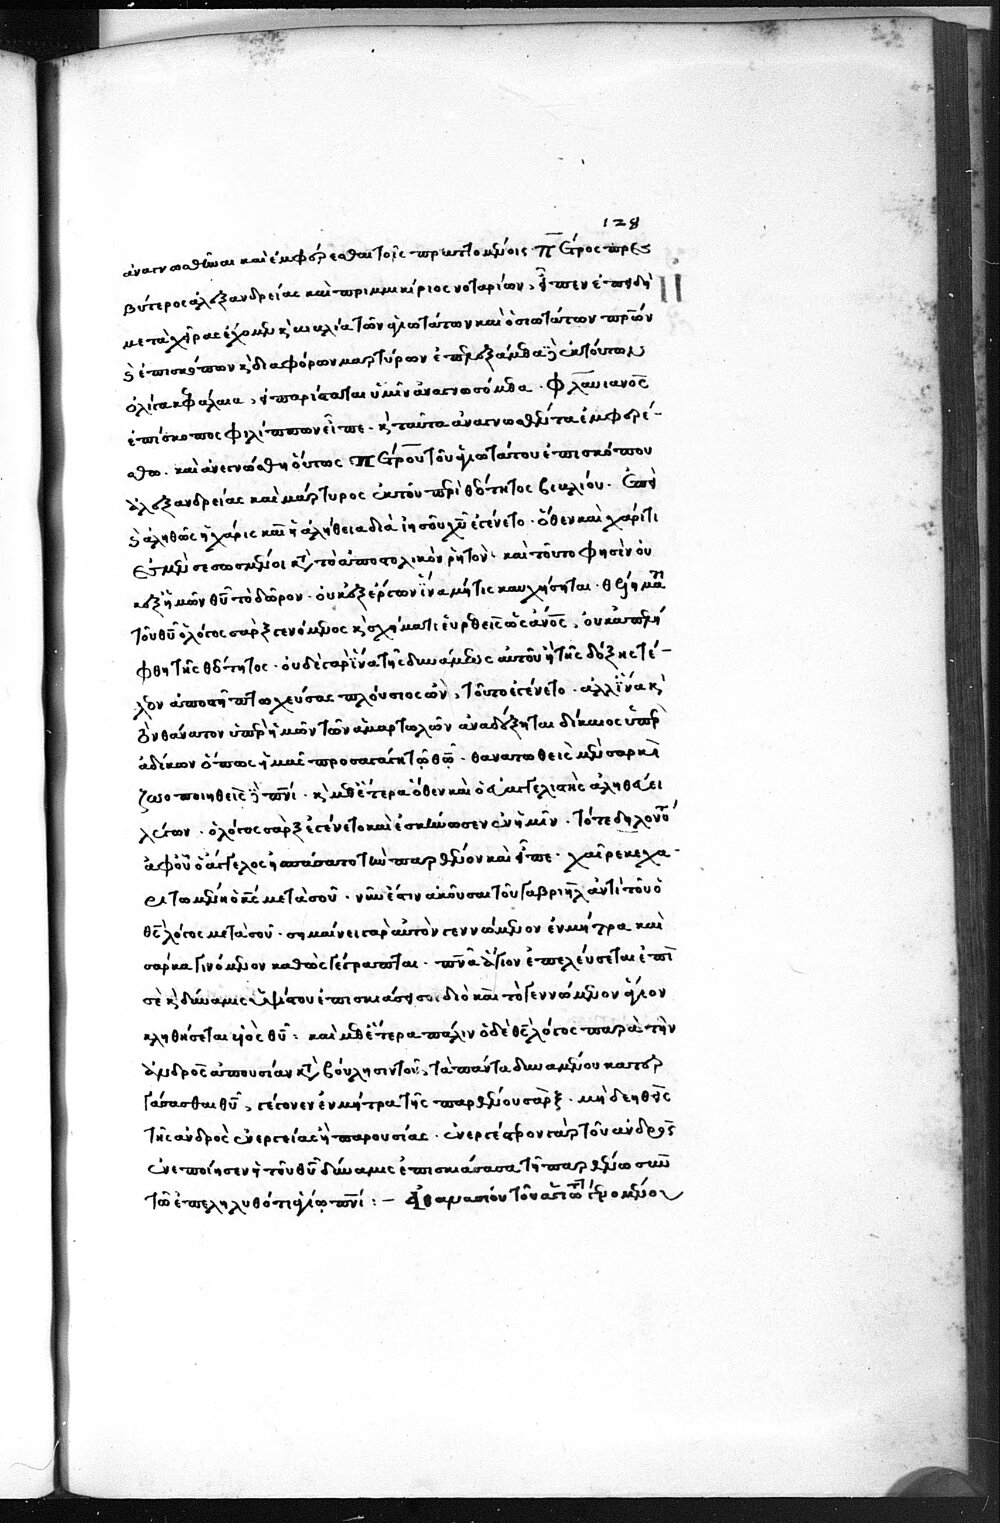 128
ἀναγνωσθῆναι καὶ ἐμφέρεσθαι τοῖς πραττομένοις · Πέτρος πρεσ
βύτερος ἀλεξανδρείας καὶ πριμμικίριος νοταρίων, εἶπεν ἐπειδὴ
μετὰ χεῖρας ἔχομεν κ βιβλία τῶν ἁγιωτάτων καὶ ὁσιωτάτων πρων
κ ἐπισκόπων κ διαφόρων μαρτύρων ἐπελεξάμεθα δὲ ἐκ τούτων
ὀλίγα κεφάλαια, εἰ παρίσταται ὑμῖν ἀναγνωσόμεθα · Φλαυιανὸς
ἐπίσκοπος φιλίππων εἶπε · κ ταῦτα ἀναγνωσθέντα ἐμφερέ-
σθω · καὶ ἀνεγνώσθη οὕτως Πέτρου τοῦ ἁγιωτάτου ἐπισκόπου
ἀλεξανδρείας καὶ μάρτυρος ἐκ τοῦ περὶ θεότητος βιβλίου · Ἐπεὶ
κ ἀληθῶς ἡ χάρις καὶ ἡ ἀλήθεια διὰ ἰησοῦ χυ ἐγένετο · ὅθεν καὶ χάριτι
ἐσμὲν σεσωσμένοι κτ τὸ ἀποστολικὸν ῥητὸν · καὶ τοῦτο φησὶν οὐ
κ ἐξ ἡμῶν θυ τὸ δῶρον · οὐκ ἐξ ἔργων ἵνα μή τις καυχήσηται · θελήμα
τοῦ θυ ὁ λόγος σὰρξ γενόμενος κ σχήματι εὑρεθεὶς ὡς ἄνος, οὐκ ἀπελεί
φθη τῆς θεότητος · οὐδὲ γὰρ ἵνα τῆς δυνάμεως αὐτοῦ ἢ τῆς δόξης τέ-
λεον ἀποστῇ πτωχεύσας πλούσιος ὢν, τοῦτο ἐγένετο · ἀλλ ἵνα κ
τὸν θάνατον ὑπὲρ ἡμῶν τῶν ἁμαρτωλῶν ἀναδέξηται δίκαιος ὑπὲρ
ἀδίκων ὅπως ἡμᾶς προσαγάγῃ τῷ θω · θανατωθεὶς μὲν σαρκὶ
ζωοποιηθεὶς δὲ πνι · κ μεθ ἕτερα ὅθεν καὶ ὁ εὐαγγελιστὴς ἀληθεύει
λέγων · ὁ λόγος σὰρξ ἐγένετο καὶ ἐσκήνωσεν ἐν ἡμῖν · τότε δηλονότι
ἀφ οὗ ὁ ἄγγελος ἠσπάσατο τὴν παρθένον καὶ εἶπε · χαῖρε κεχα-
ριτωμένη ὁ κς μετὰ σοῦ · νῦν ἔστιν ἀκοῦσαι τοῦ γαβριὴλ ἀντὶ τοῦ ὁ
θς λόγος μετὰ σοῦ · σημαίνει γὰρ αὐτὸν γεννώμενον ἐν μήτρα καὶ
σάρκα γινόμενον καθὼς γέγραπται · πνα ἅγιον ἐπελεύσεται ἐπὶ
σὲ κ δύναμις ὑψίστου ἐπισκιάσει σοι διὸ καὶ τὸ γεννώμενον ἅγιον
κληθήσεται υἱὸς θυ : καὶ μεθ ἕτερα πάλιν ὁ δὲ θς λόγος παρὰ τὴν
ἀνδρὸς ἀπουσίαν κτ βούλησιν τοῦ, τὰ πάντα δυναμένου κατερ
γάσασθαι θυ, γέγονεν ἐν μήτρα τῆς παρθένου σὰρξ · μὴ δεηθεὶς
τῆς ἀνδρὸς ἐνεργείας ἢ παρουσίας · ἐνεργέστερον γὰρ τοῦ ἀνδρὸς
ἐνεποίησεν ἡ τοῦ θυ δύναμις ἐπισκιάσασα τῇ παρθένω σὺν
τῶ ἐπεληλυθότι ἁγίῳ πνι : – Ἀθανασίου τοῦ ἁγιωτ γενομένου